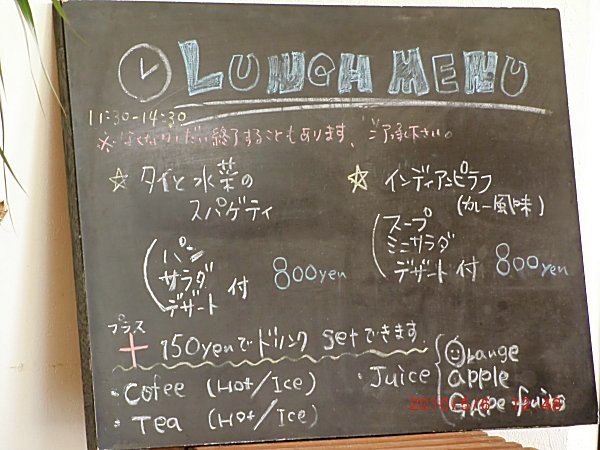 LUNCH MENU
11:30-14:30
※なくなりしだい終了することもあります、ご了承下さい。
☆ タイと水菜の
スパゲティ
パン
サラダ
デザート 付 800yen
☆ インディアンピラフ
(カレー風味)
スープ
ミニサラダ
デザート 付 800yen
プラス
+ 150yenでドリンク setできます。
・Cofee (Hot/Ice)
・Tea (Hot/Ice)
・Juice
Orange
apple
Grape fruits
2010/5/6 12:48